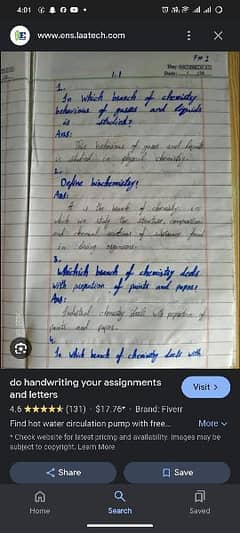 4:01
www.ens.laatech.com
1.
In which branch of chemistry
behaviour of gases and liquids
is studied?
Ans:
This behaviour of gases and liquids
is studied in physical chemistry.
2.
Define biochemistry?
Ans:
It is the branch of chemistry in
which we study the structure, composition
and chemical reactions of substances found
in living organisms.
3.
Which branch of chemistry deals
with prepration of paints and paper?
Ans:
Industrial chemistry deals with prepration of
paints and paper.
4.
In which branch of chemistry deals with
do handwriting your assignments
and letters
Visit >
4.6 ★★★★★ (131) · $17.76* · Brand: Fiverr
Find hot water circulation pump with free... More
* Check website for latest pricing and availability. Images may be
subject to copyright. Learn More
Share
Save
Home
Search
Saved